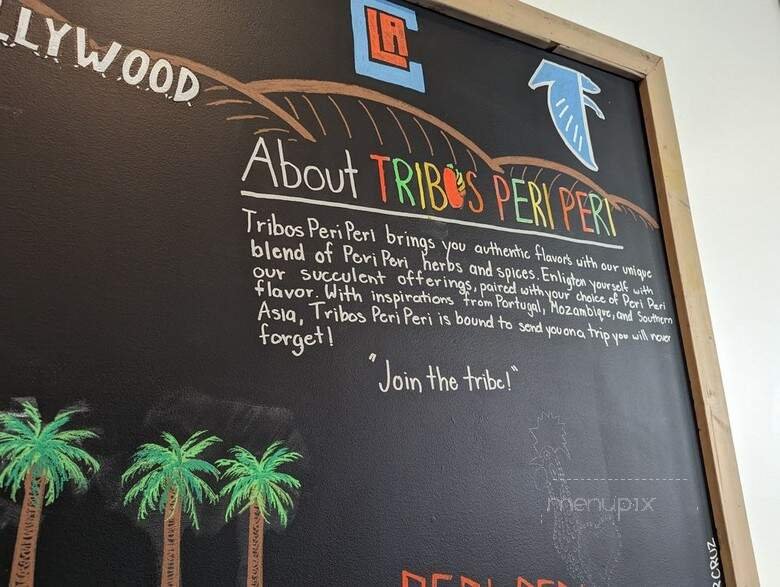 LLYWOOD
LA
About TRIBOS PERI PERI
Tribos Peri Peri brings you authentic flavors with our unique
blend of Peri Peri herbs and spices. Enligten yourself with
our succulent offerings, paired with your choice of Peri Peri
flavor. With inspirations from Portugal, Mozambique, and Southern
Asia, Tribos Peri Peri is bound to send you on a trip you will never
forget!
"Join the tribe!"
menupix
PERI PERI